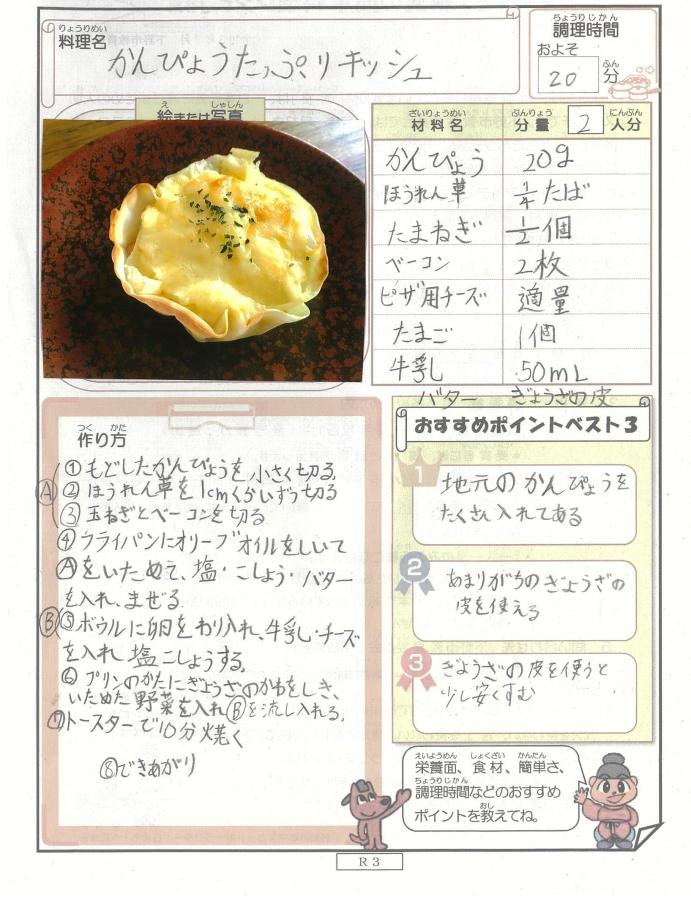 りょうりめい
料理名
かんぴょうたっぷりキッシュ
ちょうりじかん
調理時間
およそ
20 分
ふん
え しゃしん
絵または写真
ざいりょうめい ぶんりょう にんぶん
材料名 分量 2 人分
かんぴょう 20g
ほうれん草 1/4たば
たまねぎ 1/2個
ベーコン 2枚
ピザ用チーズ 適量
たまご 1個
牛乳 50mL
バター ぎょうざの皮
つく かた
作り方
①もどしたかんぴょうを小さく切る。
Ⓐ②ほうれん草を1cmくらいずつ切る
③玉ねぎとベーコンを切る
④フライパンにオリーブオイルをしいて
Ⓐをいためて、塩・こしょう・バター
を入れ、まぜる
Ⓑ⑤ボウルに卵をわり入れ、牛乳・チーズ
を入れ塩こしょうする。
⑥プリンのかたにぎょうざのかわをしき、
いためた野菜を入れⒷを流し入れる。
⑦トースターで10分焼く
⑧できあがり
おすすめポイントベスト3
1
地元のかんぴょうを
たくさん入れてある
2
あまりがちのぎょうざの
皮を使える
3
ぎょうざの皮を使うと
少し安くすむ
えいようめん しょくざい かんたん
栄養面、食材、簡単さ、
ちょうりじかん
調理時間などのおすすめ
おし
ポイントを教えてね。
R3